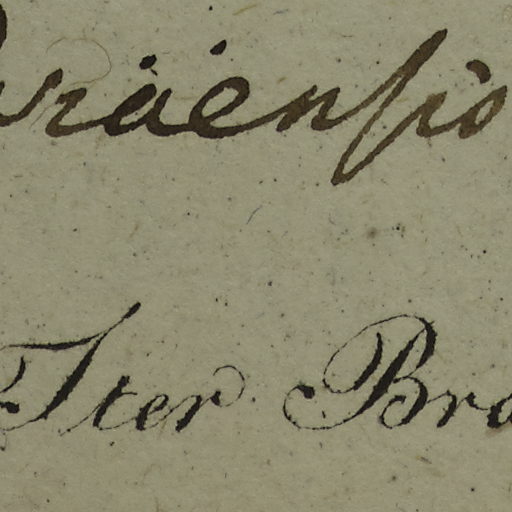 raënſis
Iter Bra